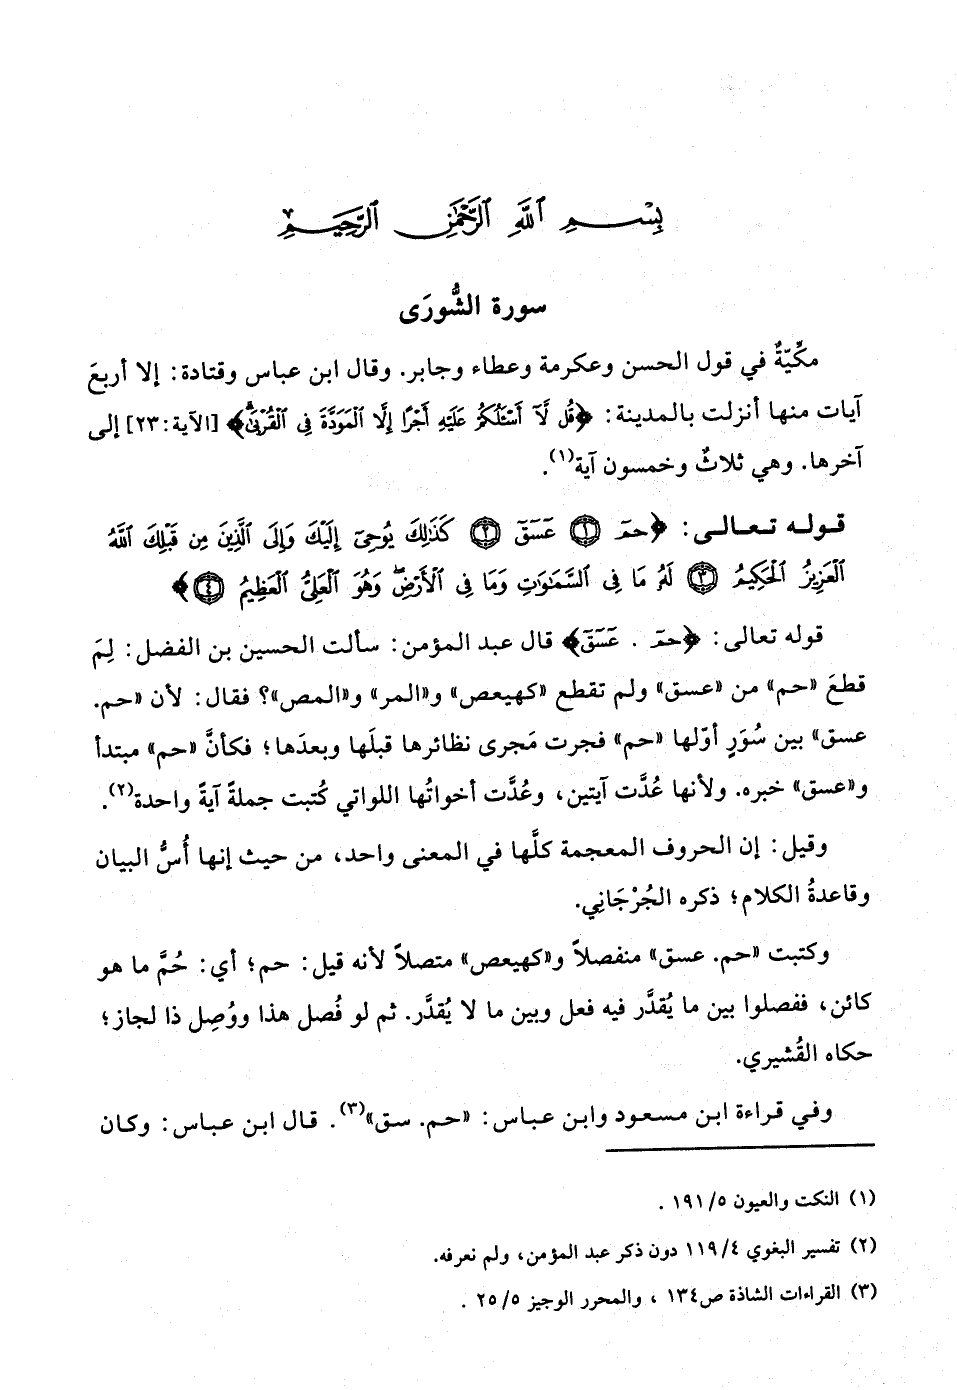 بِسْمِ اللَّهِ الرَّحْمَٰنِ الرَّحِيمِ
سورة الشُّورَى
مكِّيّةٌ في قول الحسن وعكرمة وعطاء وجابر. وقال ابن عباس وقتادة: إلا أربعَ
آيات منها أنزلت بالمدينة: ﴿قُل لَّآ أَسْـَٔلُكُمْ عَلَيْهِ أَجْرًا إِلَّا ٱلْمَوَدَّةَ فِى ٱلْقُرْبَىٰۗ﴾ [الآية:٢٣] إلى
آخرها. وهي ثلاثٌ وخمسون آية(١).
قوله تعالى: ﴿حمٓ ١ عٓسٓقٓ ٢ كَذَٰلِكَ يُوحِىٓ إِلَيْكَ وَإِلَى ٱلَّذِينَ مِن قَبْلِكَ ٱللَّهُ
ٱلْعَزِيزُ ٱلْحَكِيمُ ٣ لَهُۥ مَا فِى ٱلسَّمَٰوَٰتِ وَمَا فِى ٱلْأَرْضِۖ وَهُوَ ٱلْعَلِىُّ ٱلْعَظِيمُ ٤﴾
قوله تعالى: ﴿حمٓ . عٓسٓقٓ﴾ قال عبد المؤمن: سألت الحسين بن الفضل: لِمَ
قطعَ «حم» من «عسق» ولم تقطع «كهيعص» و«المر» و«المص»؟ فقال: لأن «حم.
عسق» بين سُوَرٍ أوّلها «حم» فجرت مَجرى نظائرها قبلَها وبعدَها؛ فكأنَّ «حم» مبتدأ
و«عسق» خبره. ولأنها عُدَّت آيتين، وعُدَّت أخواتُها اللواتي كُتبت جملةً آيةً واحدة(٢).
وقيل: إن الحروف المعجمة كلَّها في المعنى واحد، من حيث إنها أُسُّ البيان
وقاعدةُ الكلام؛ ذكره الجُرْجَانِي.
وكتبت «حم. عسق» منفصلاً و«كهيعص» متصلاً لأنه قيل: حم؛ أي: حُمَّ ما هو
كائن، ففصلوا بين ما يُقدَّر فيه فعل وبين ما لا يُقدَّر. ثم لو فُصل هذا ووُصِل ذا لجاز؛
حكاه القُشيري.
وفي قراءة ابن مسعود وابن عباس: «حم. سق»(٣). قال ابن عباس: وكان
(١) النكت والعيون ١٩١/٥ .
(٢) تفسير البغوي ١١٩/٤ دون ذكر عبد المؤمن، ولم نعرفه.
(٣) القراءات الشاذة ص١٣٤ ، والمحرر الوجيز ٢٥/٥ .